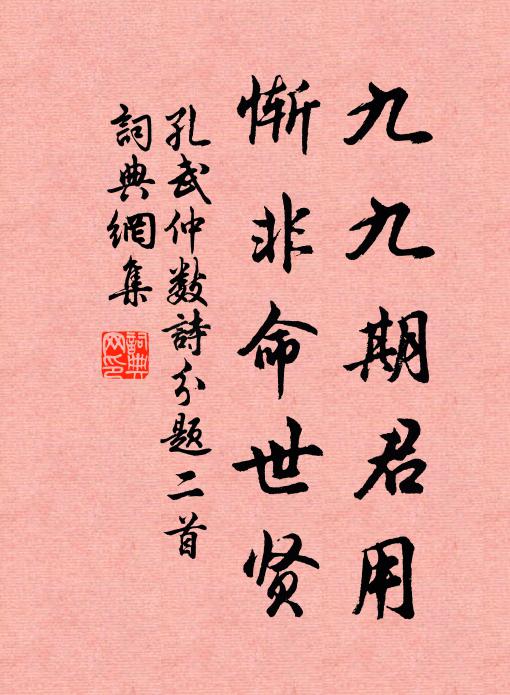 九九期君用
惭非命世贤
孔武仲数詩分題二首
詞典網集
詞典网印